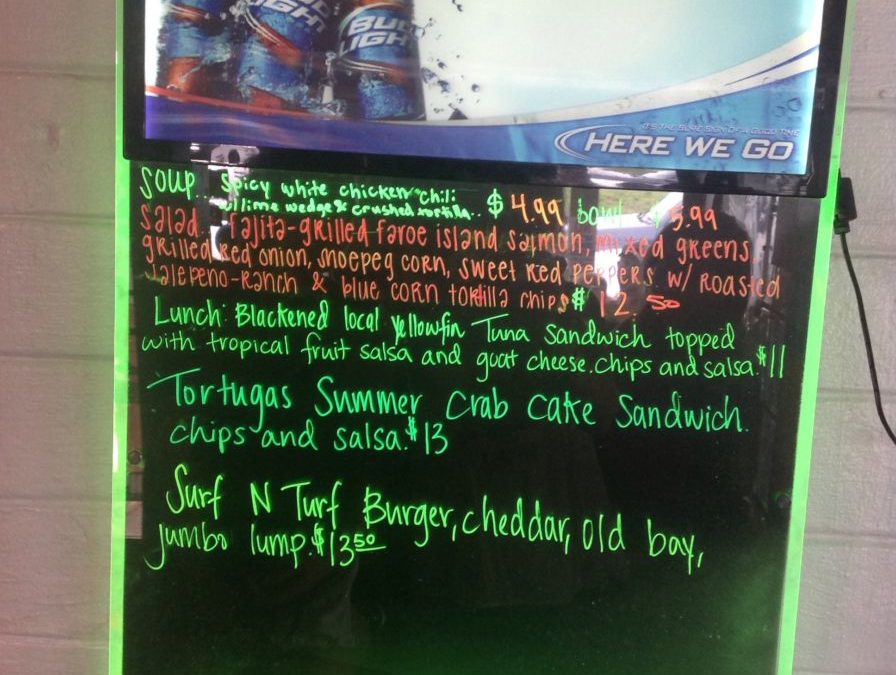 BUD LIGHT
BUD LIGHT
IT'S THE SURE SIGN OF A GOOD TIME
HERE WE GO
Soup... spicy white chicken chili
w/lime wedge & crushed tortilla.. $4.99 bowl $5.99
Salad fajita-grilled faroe island salmon, mixed greens
grilled red onion, shoepeg corn, sweet red peppers w/ roasted
Jalepeno-Ranch & blue corn tortilla chips $12.50
Lunch: Blackened local yellowfin Tuna Sandwich topped
with tropical fruit salsa and goat cheese. chips and salsa. $11
Tortugas Summer Crab Cake Sandwich.
chips and salsa. $13
Surf N Turf Burger, cheddar, old bay,
jumbo lump. $13.50